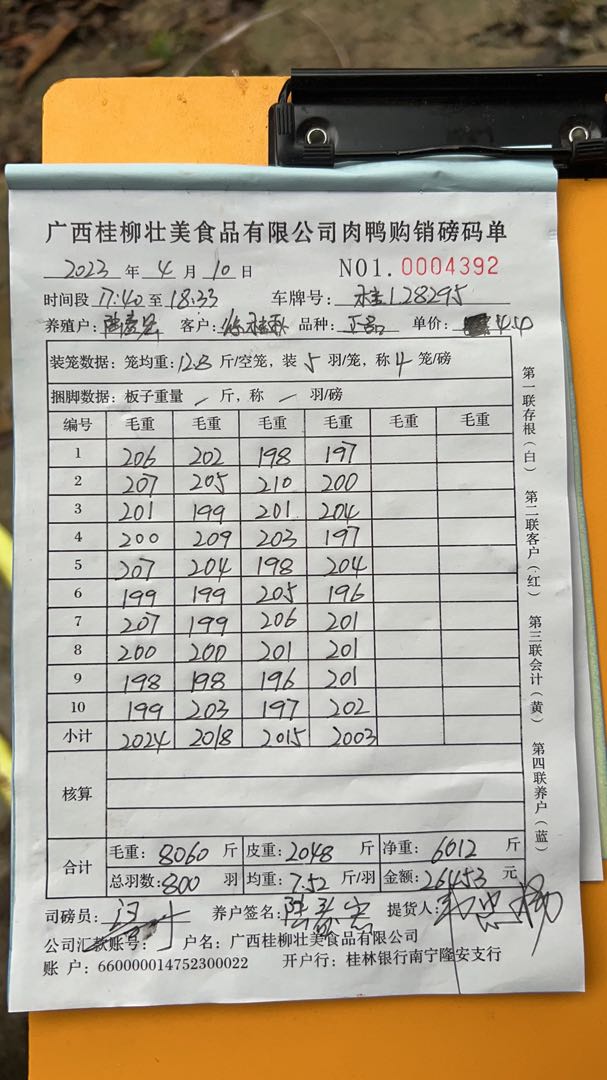 广西桂柳壮美食品有限公司肉鸭购销磅码单
2023 年 4 月 10 日 NO1. 0004392
时间段 17:40 至 18:33 车牌号: 桂128295
养殖户: 客户: 品种: 正品 单价:
装笼数据: 笼均重: 12.8 斤/空笼, 装 5 羽/笼, 称 4 笼/磅
捆脚数据: 板子重量 / 斤, 称 / 羽/磅
编号 毛重 毛重 毛重 毛重 毛重 毛重
1 206 202 198 197
2 207 205 210 200
3 201 199 201 204
4 200 209 203 197
5 207 204 198 204
6 199 199 205 196
7 207 199 206 201
8 200 200 201 201
9 198 198 196 201
10 199 203 197 202
小计 2024 2018 2015 2003
核算
合计 毛重: 8060 斤 皮重: 2048 斤 净重: 6012 斤
总羽数: 800 羽 均重: 7.52 斤/羽 金额: 26453 元
司磅员: 养户签名: 提货人:
公司汇款账号: 户名: 广西桂柳壮美食品有限公司
账 户: 660000014752300022 开户行: 桂林银行南宁隆安支行
第一联存根(白)
第二联客户(红)
第三联会计(黄)
第四联养户(蓝)